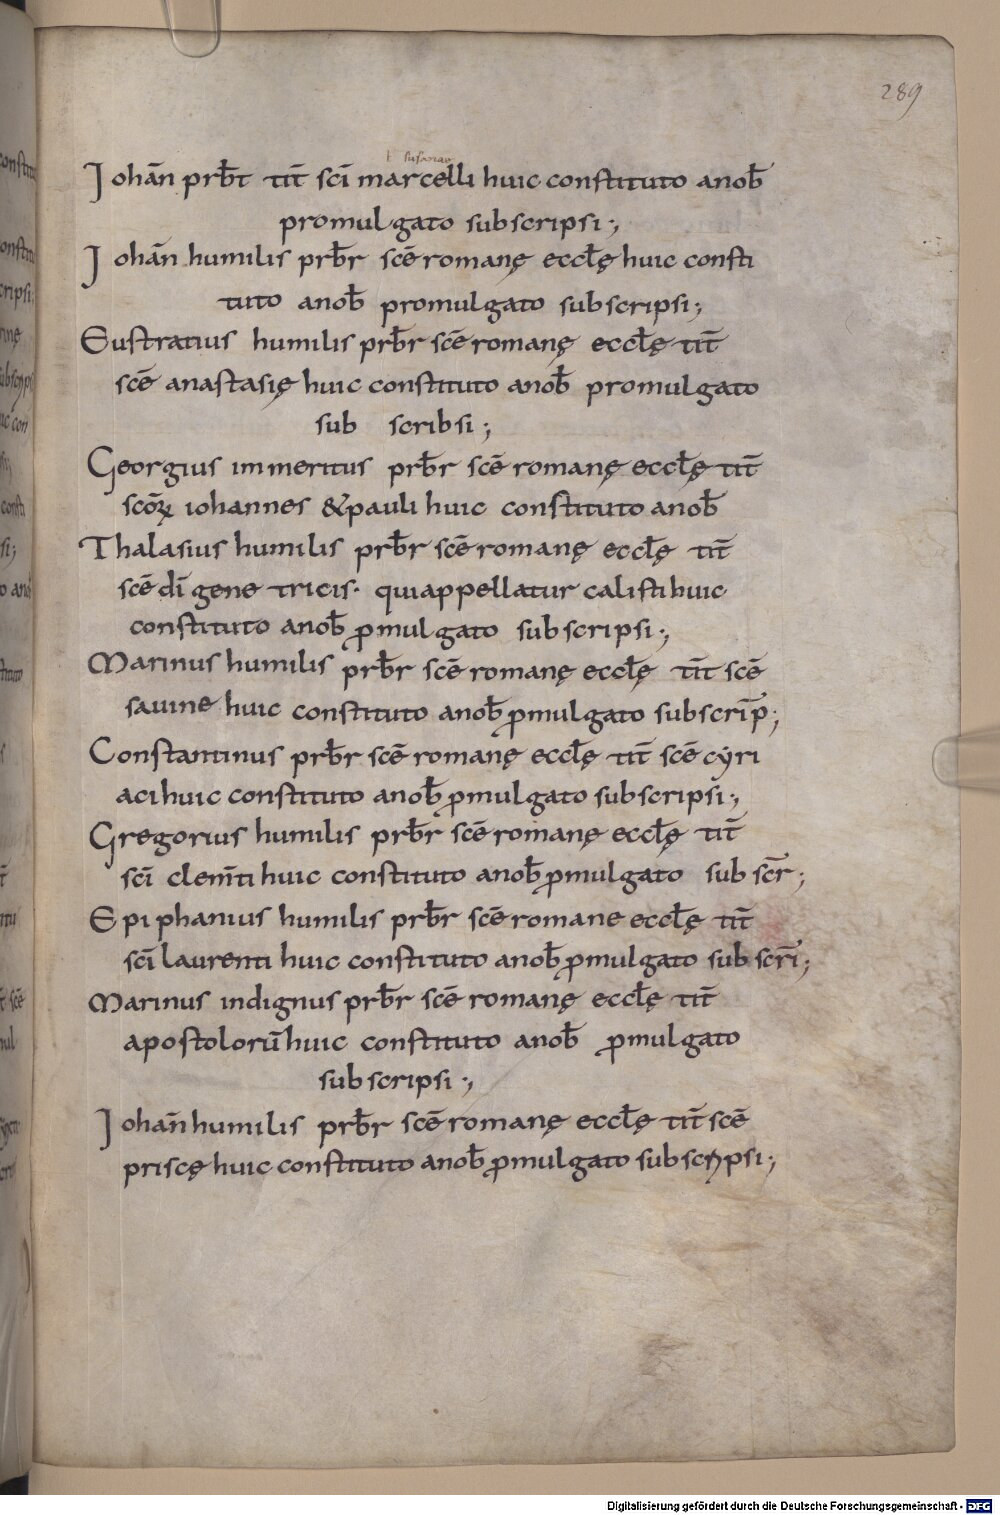 289
ł susannae
Iohan̄ prb̄t tit̄ sc̄i marcelli huic constituto anob̄
promulgato subscripsi;
Iohan̄ humilis prb̄r sc̄e romanę eccl̄ę huic consti
tuto anob̄ promulgato subscripsi;
Eustratius humilis prb̄r sc̄e romanę eccl̄ę tit̄
sc̄ę anastasię huic constituto anob̄ promulgato
sub scribsi;
Georgius immeritus prb̄r sc̄e romanę eccl̄ę tit̄
scōꝝ iohannes & pauli huic constituto anob̄
Thalasius humilis prb̄r sc̄e romanę eccl̄ę tit̄
sc̄e dī gene tricis· qui appellatur calisti huic
constituto anob̄ ꝓmulgato subscripsi;
Marinus humilis prb̄r sc̄e romanę eccl̄ę tit̄ sc̄e
savine huic constituto anob̄ ꝓmulgato subscrip̄;
Constantinus prb̄r sc̄e romanę eccl̄ę tit̄ sc̄e cẏri
aci huic constituto anob̄ ꝓmulgato subscripsi;
Gregorius humilis prb̄r sc̄e romanę eccl̄ę tit̄
sc̄i clem̄ti huic constituto anob̄ ꝓmulgato sub scr̄;
Epiphanius humilis prb̄r sc̄e romane eccl̄ę tit̄
sc̄i laurenti huic constituto anob̄ ꝓmulgato sub scr̄i;
Marinus indignus prb̄r sc̄e romanę eccl̄ę tit̄
apostolorū huic constituto anob̄ ꝓmulgato
subscripsi;
Iohan̄ humilis prb̄r sc̄e romanę eccl̄ę tit̄ sc̄e
priscę huic constituto anob̄ ꝓmulgato subscripsi;
Digitalisierung gefördert durch die Deutsche Forschungsgemeinschaft - DFG